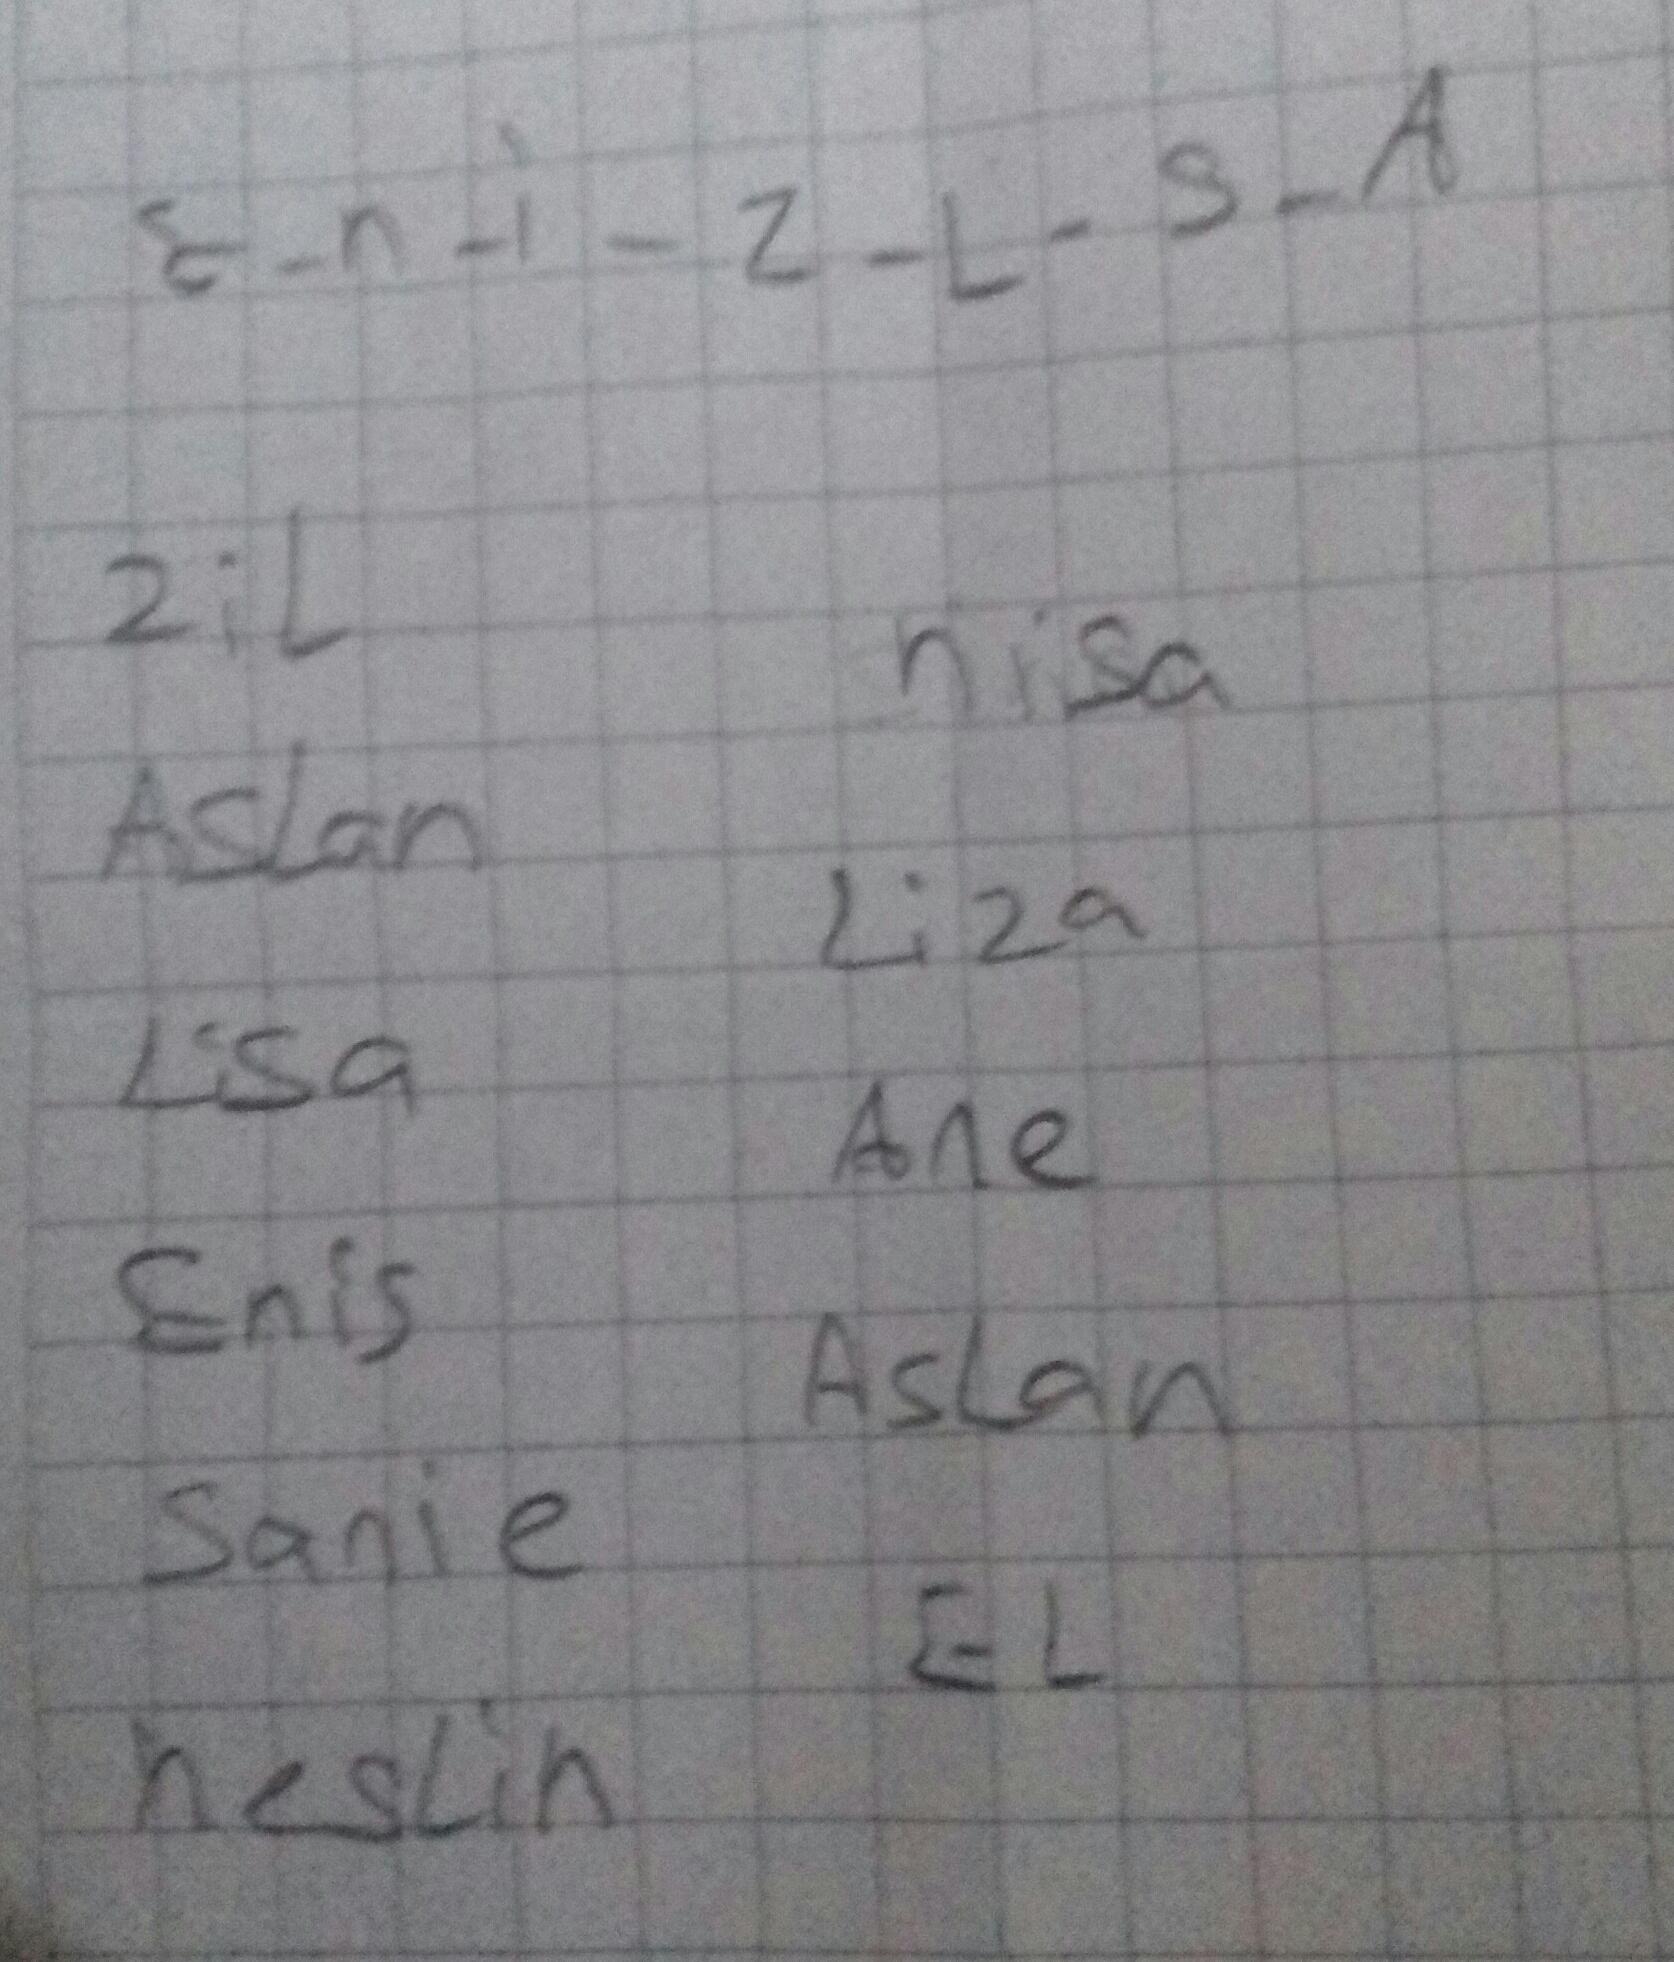 E-n-i-Z-L-S-A
ziL
AsLan
Lisa
Enis
Sanie
nesLin
nisa
Liza
Ane
AsLan
EL